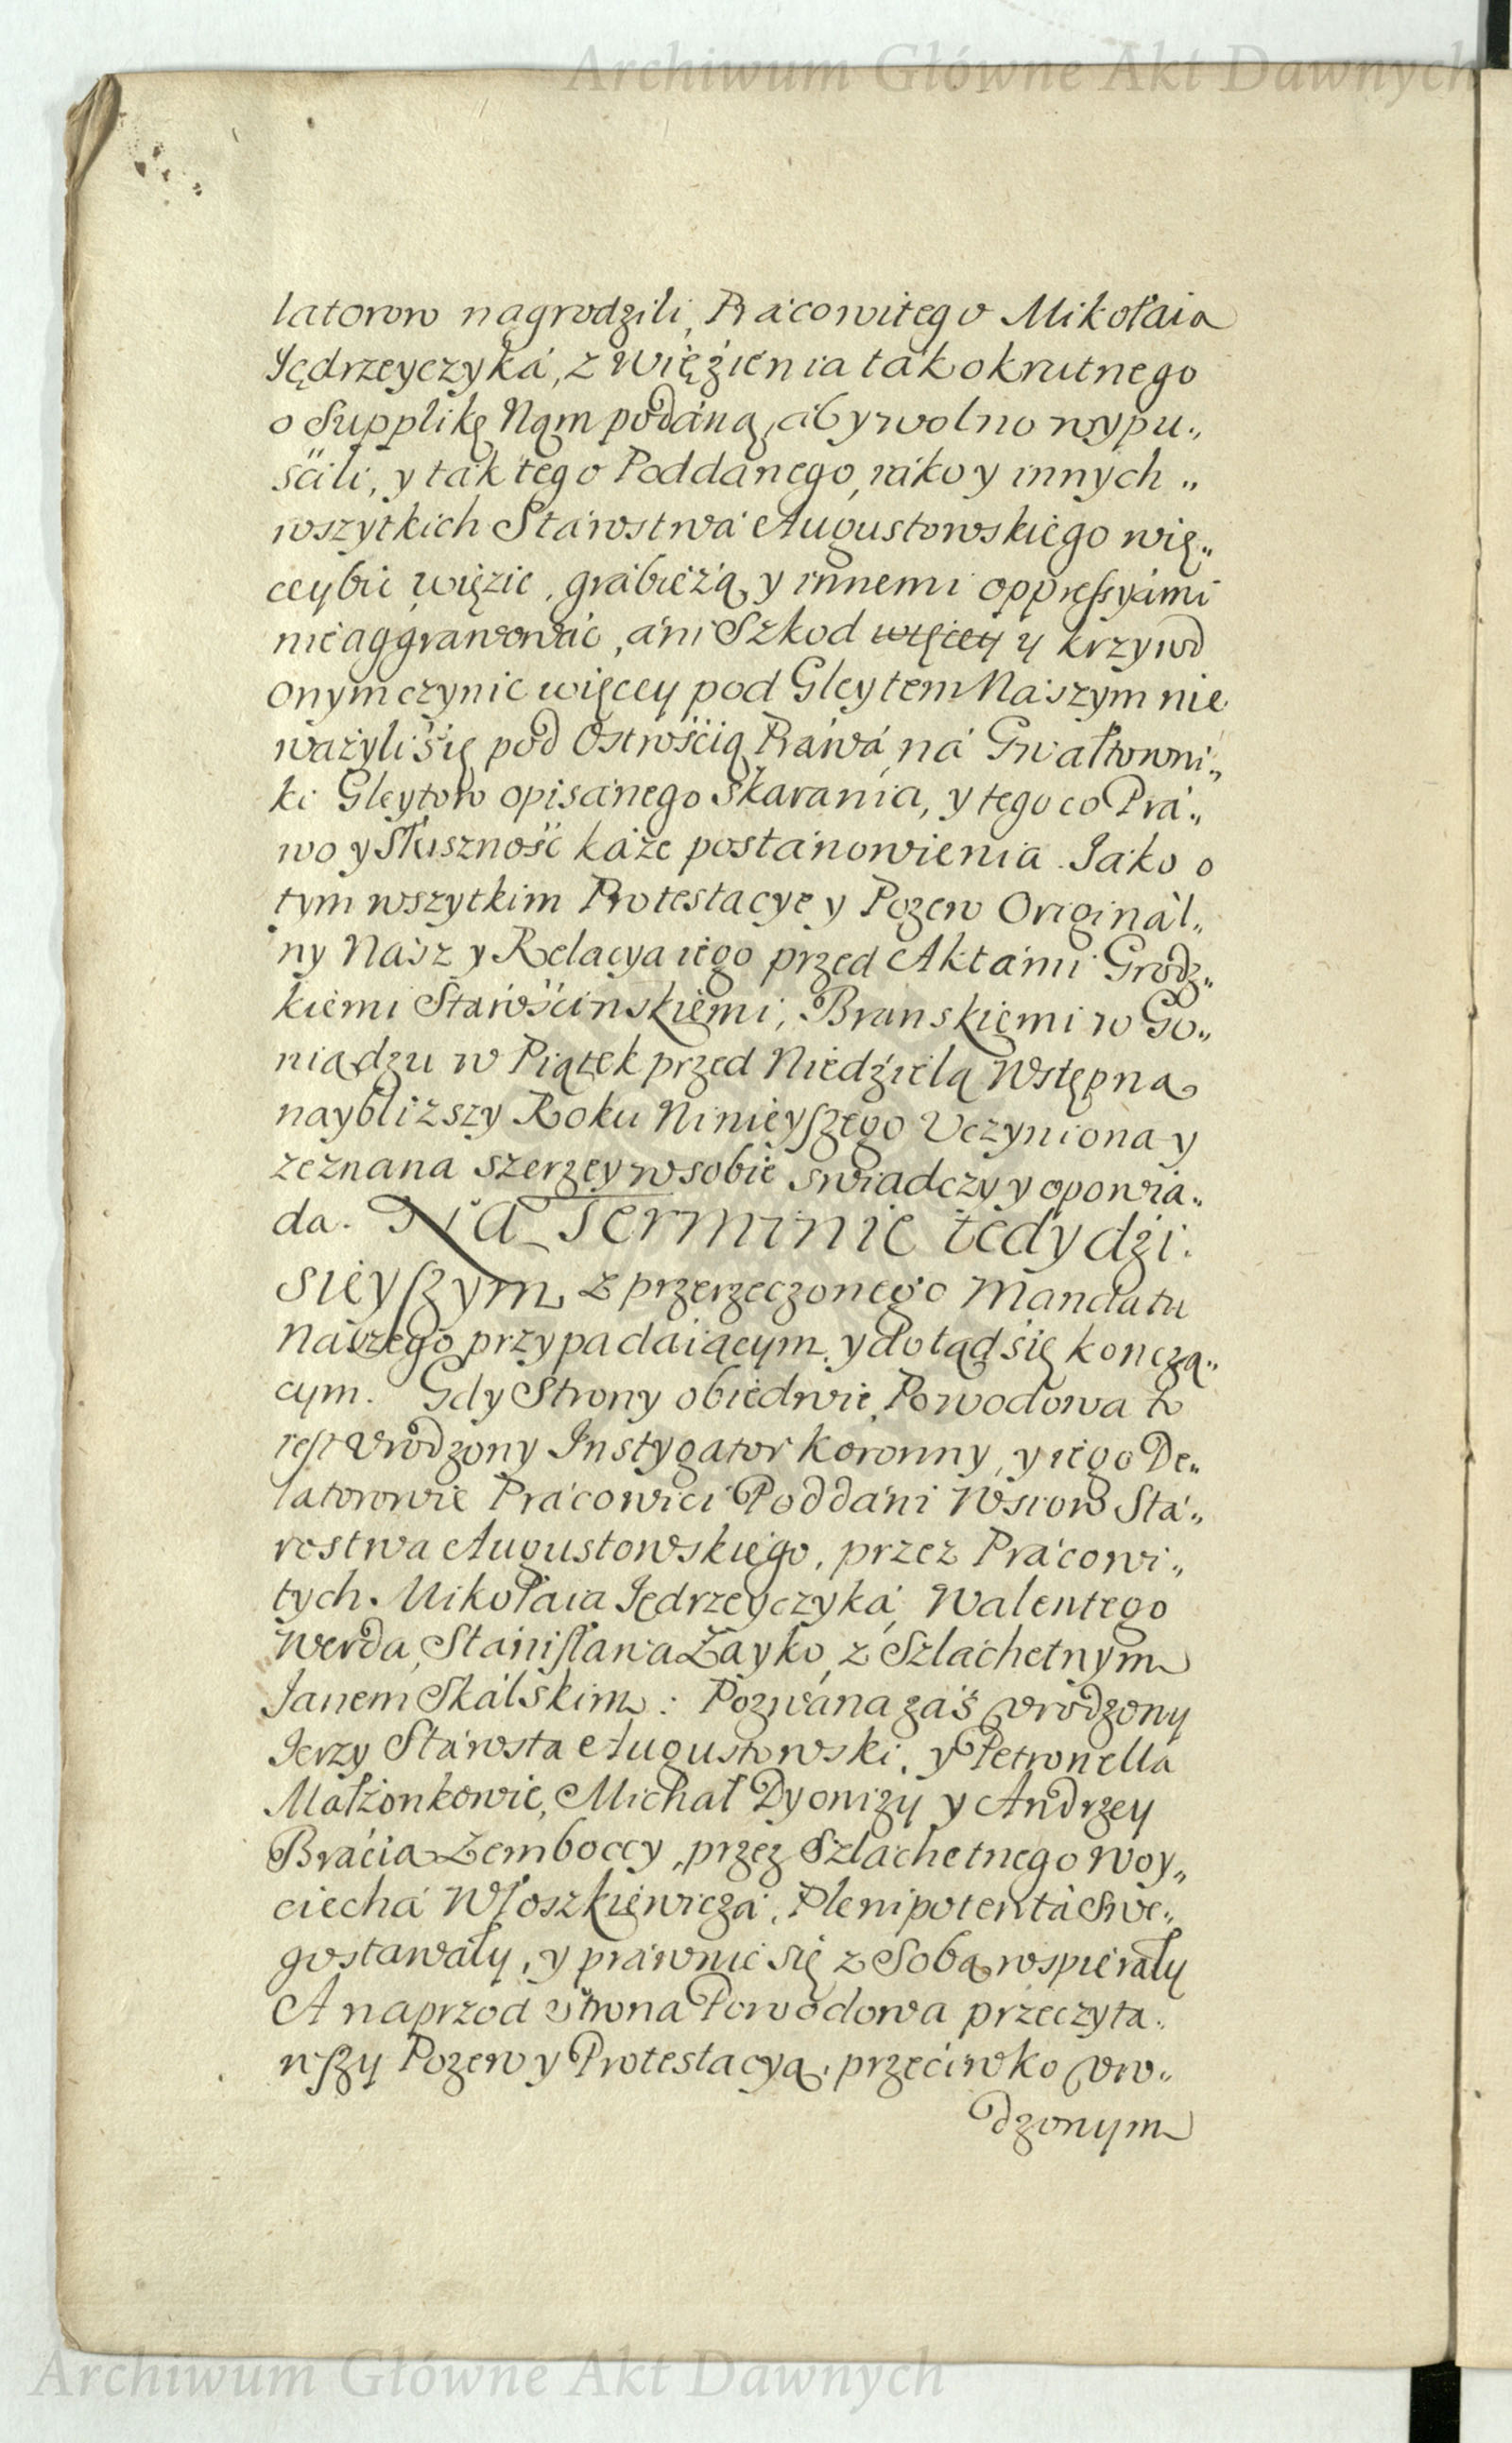 Archiwum Główne Akt Dawnych
latorow nagrodzili, Pracowitego Mikołaia
Jędrzeyczyká, z więźienia ták okrutnego
o Supplikę Nąm podáną, áby wolno wypu„
śćili, y ták tego Poddánego, iáko y innych „
wszytkich Stárostwá Augustowskiego wię„
cey bić więzić, grábieżą y innemi oppressyámi
nie aggrawowáć, áni Szkod więcey y krzywd
onym czynić więcey pod Gleytem Nászym nie
ważyli się pod Ostrośćią Práwá ná Gwałtowni„
ki Gleytow opisánego skarania, y tego co Prá„
wo y Słuszność káże postánowienia. Jáko o
tym wszytkim Protestacye y Pozew Originál„
ny Nász y Relacya iego przed Aktámi Grodz„
kiemi Stárośćinskiemi, Branskiemi w Go„
niądzu w Piątek przed Niedźielą Wstępną
naybliższy Roku Ninieyszego Uczyniona y
zeznana szerzey w sobie swiadczy y opowia„
da. Na Terminie tedy dźi„
sieyszym z przerzeczonego Mandatu
Nászego przypadaiącym, y dotąd się kończą„
cym. Gdy Strony obiedwie, Powodowa to
iest Vrodzony Instygator Koronny, y iego De„
latorowie Prácowići Poddáni Wsiow Stá„
rostwa Augustowskiego, przez Prácowi„
tych Mikołaia Jędrzeyczyká, Walentego
Werda, Stánisława Zayko, z Szláchetnym
Janem Skálskim: Pozwána záś Vrodzony
Jerzy Stárosta Augustowski, y Petronellá
Małżonkowie, Michał Dyonizy y Andrzey
Bráćia Zemboccy, przez Szláchetnego Woy„
ciechá Włoszkiewiczá, Plenipotentá Swe„
go stawáły, y práwnie się z Sobą wspieráły
A naprzod strona Powodowa przeczyta„
wszy Pozew y Protestacyą, przećiwko Vro„
dzonym
Archiwum Główne Akt Dawnych